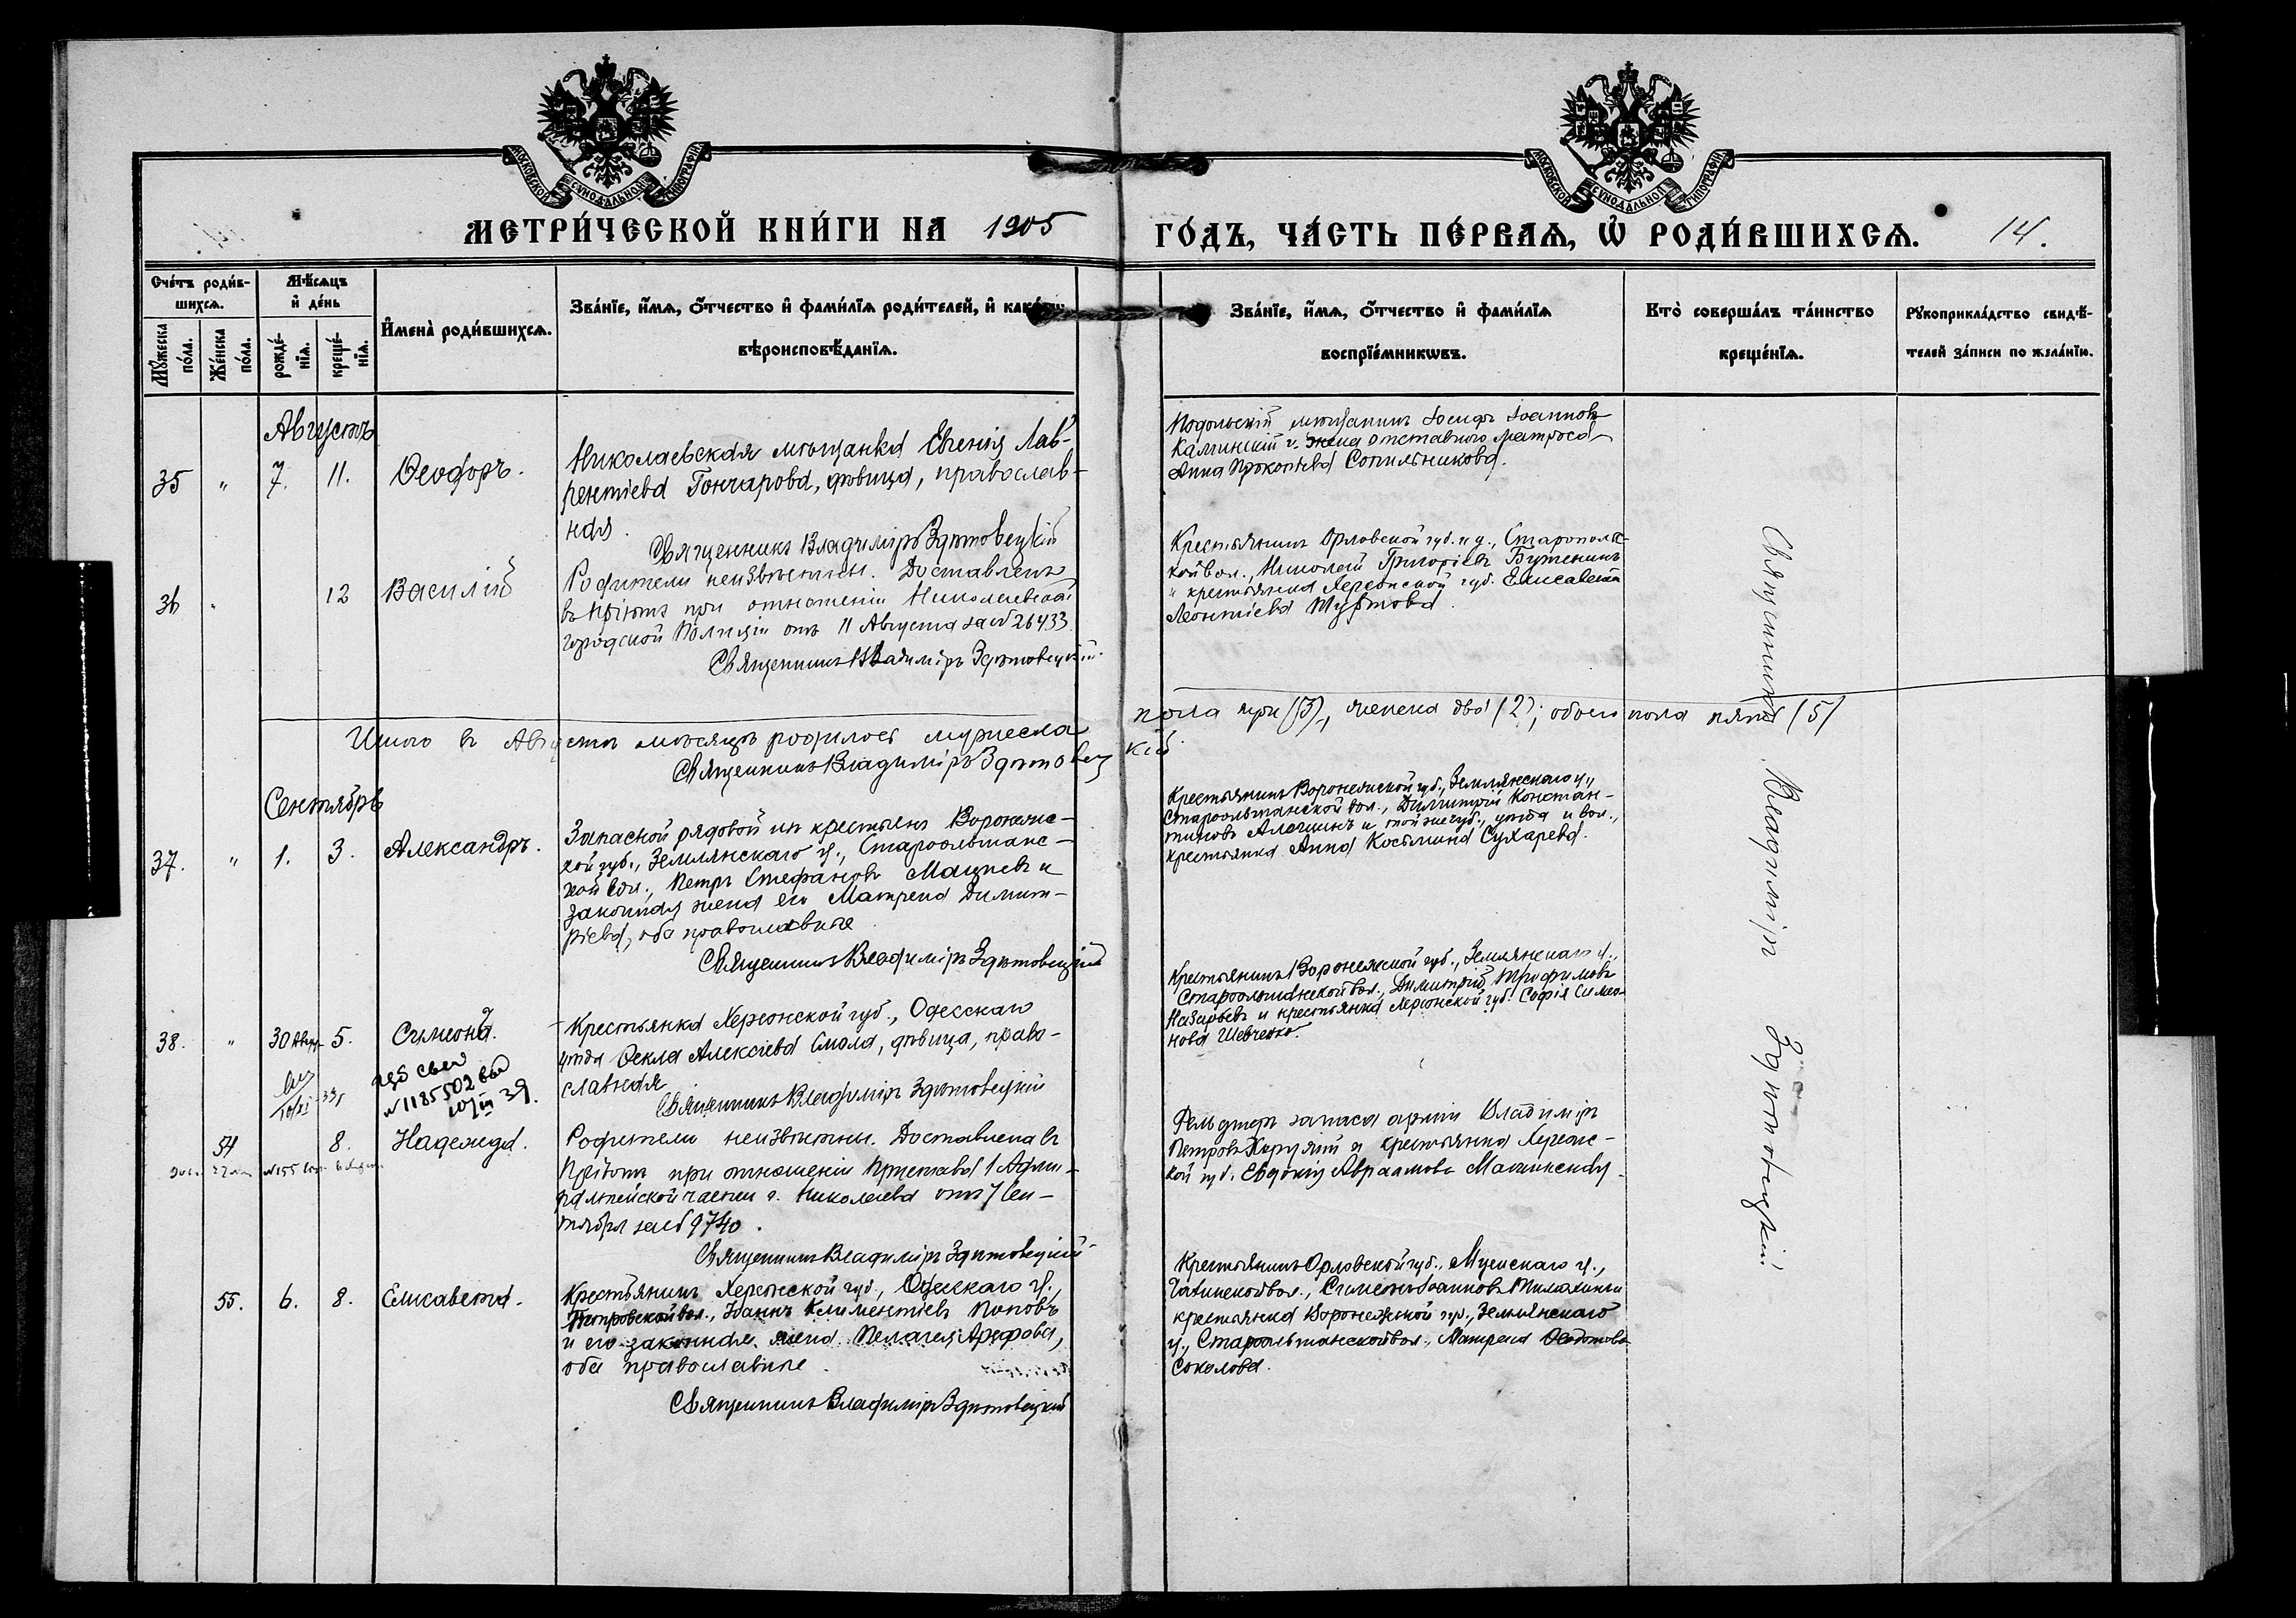 МОСКОВСКОЙ СѴНОДАЛЬНОЙ ТИПОГРАФІИ
МОСКОВСКОЙ СѴНОДАЛЬНОЙ ТИПОГРАФІИ
МЕТРИ́ЧЕСКОЙ КНИ́ГИ НА 1905
ГО́ДЪ, ЧА́СТЬ ПЕ́РВАѦ, Ѡ РОДИ́ВШИХСѦ. 14.
Сче́тъ роди́в-
шихсѧ.
Мꙋ́жеска по́ла.
Же́нска по́ла.
Мѣ́сѧцъ
и де́нь
рожде́-нїѧ.
креще́-нїѧ.
Имена̀ роди́вшихсѧ.
Зва́нїе, и́мѧ, о́тчество и фами́лїѧ роди́телей, и како́гѡ
вѣроисповѣ́данїѧ.
Зва́нїе, и́мѧ, о́тчество и фами́лїѧ
воспрїе́мникѡвъ.
Кто̀ соверша́лъ та́инство
креще́нїѧ.
Рꙋкоприкла́дство свидѣ́-
телей за́писи по жела́нїю.
Августъ
35 " 7. 11. Ѳеодоръ.
Николаевская мѣщанка Евгенія Лав-
рентіева Гончарова, дѣвица, православ-
ная.
Священникъ Владиміръ Здѣтовецкій
Подольскій мѣщанинъ Іосифъ Іоанновъ
Калинскій и жена отставного матроса
Анна Прокопіева Сопильникова.
36 " 12 Василій
Родители неизвѣстны. Доставленъ
въ Пріютъ при отношеніи Николаевской
Городской Полиціи отъ 11 Августа за № 26433
Священникъ Владиміръ Здѣтовецкій
Крестьянинъ Орловской губ. и у.,
кой вол., Николай Григоріевъ
и крестьянка Херсонской губ. Елисавета
Леонтіева
Итого въ Августѣ мѣсяцѣ родилось мужеска
пола три (3), женска два (2); обоего пола пять (5)
Священникъ Владиміръ Здѣтовец
кій
Сентябрь
37. " 1. 3. Александръ.
Запасной рядовой изъ крестьянъ Воронежс-
кой губ., Землянскаго у., Староольшанс-
кой вол., Петръ Стефановъ Мацневъ и
законная жена его Матрена Димит-
ріева, оба православные
Священникъ Владиміръ Здѣтовецкій
Крестьянинъ Воронежской губ., Землянскаго у.,
Староольшанской вол., Димитрій Констан-
тиновъ Алехинъ и той же губ., уѣзда и вол.,
крестьянка Анна Косьмина Сухарева.
38. " 30 Авг. 5. Сѵмеонъ.
Крестьянка Херсонской губ., Одесскаго
уѣзда Ѳекла Алексіева Смола, дѣвица, право-
славная
Священникъ Владиміръ Здѣтовецкій
Крестьянинъ Воронежской губ., Землянскаго у.,
Староольшанской вол., Димитрій Трофимовъ
Назарьевъ и крестьянка Херсонской губ. Софія Симео-
нова Шевченко.
№ 1185502
54 8. Надежда.
Родители неизвѣстны. Доставлена въ
Пріютъ при отношеніи Пристава 1 Адми-
ралтейской части г. Николаева отъ 7 Сен-
тября за № 9740.
Священникъ Владиміръ Здѣтовецкій
Фельдшеръ запаса арміи Владиміръ
Петровъ и крестьянка Херсонс-
кой губ. Евдокія Авраамова
55. 6. 8. Елисавета.
Крестьянинъ Херсонской губ., Одесскаго у.,
Петровской вол., Іоаннъ Климентіевъ Поповъ
и его законная жена Пелагея,
оба православные.
Священникъ Владиміръ Здѣтовецкій
Крестьянинъ Орловской губ., Мценскаго у.,
вол., Сѵмеонъ Іоанновъ
крестьянка Воронежской губ., Землянскаго
у., Староольшанской вол., Матрена Ѳедотова
Соколова.
Священникъ Владиміръ Здѣтовецкій